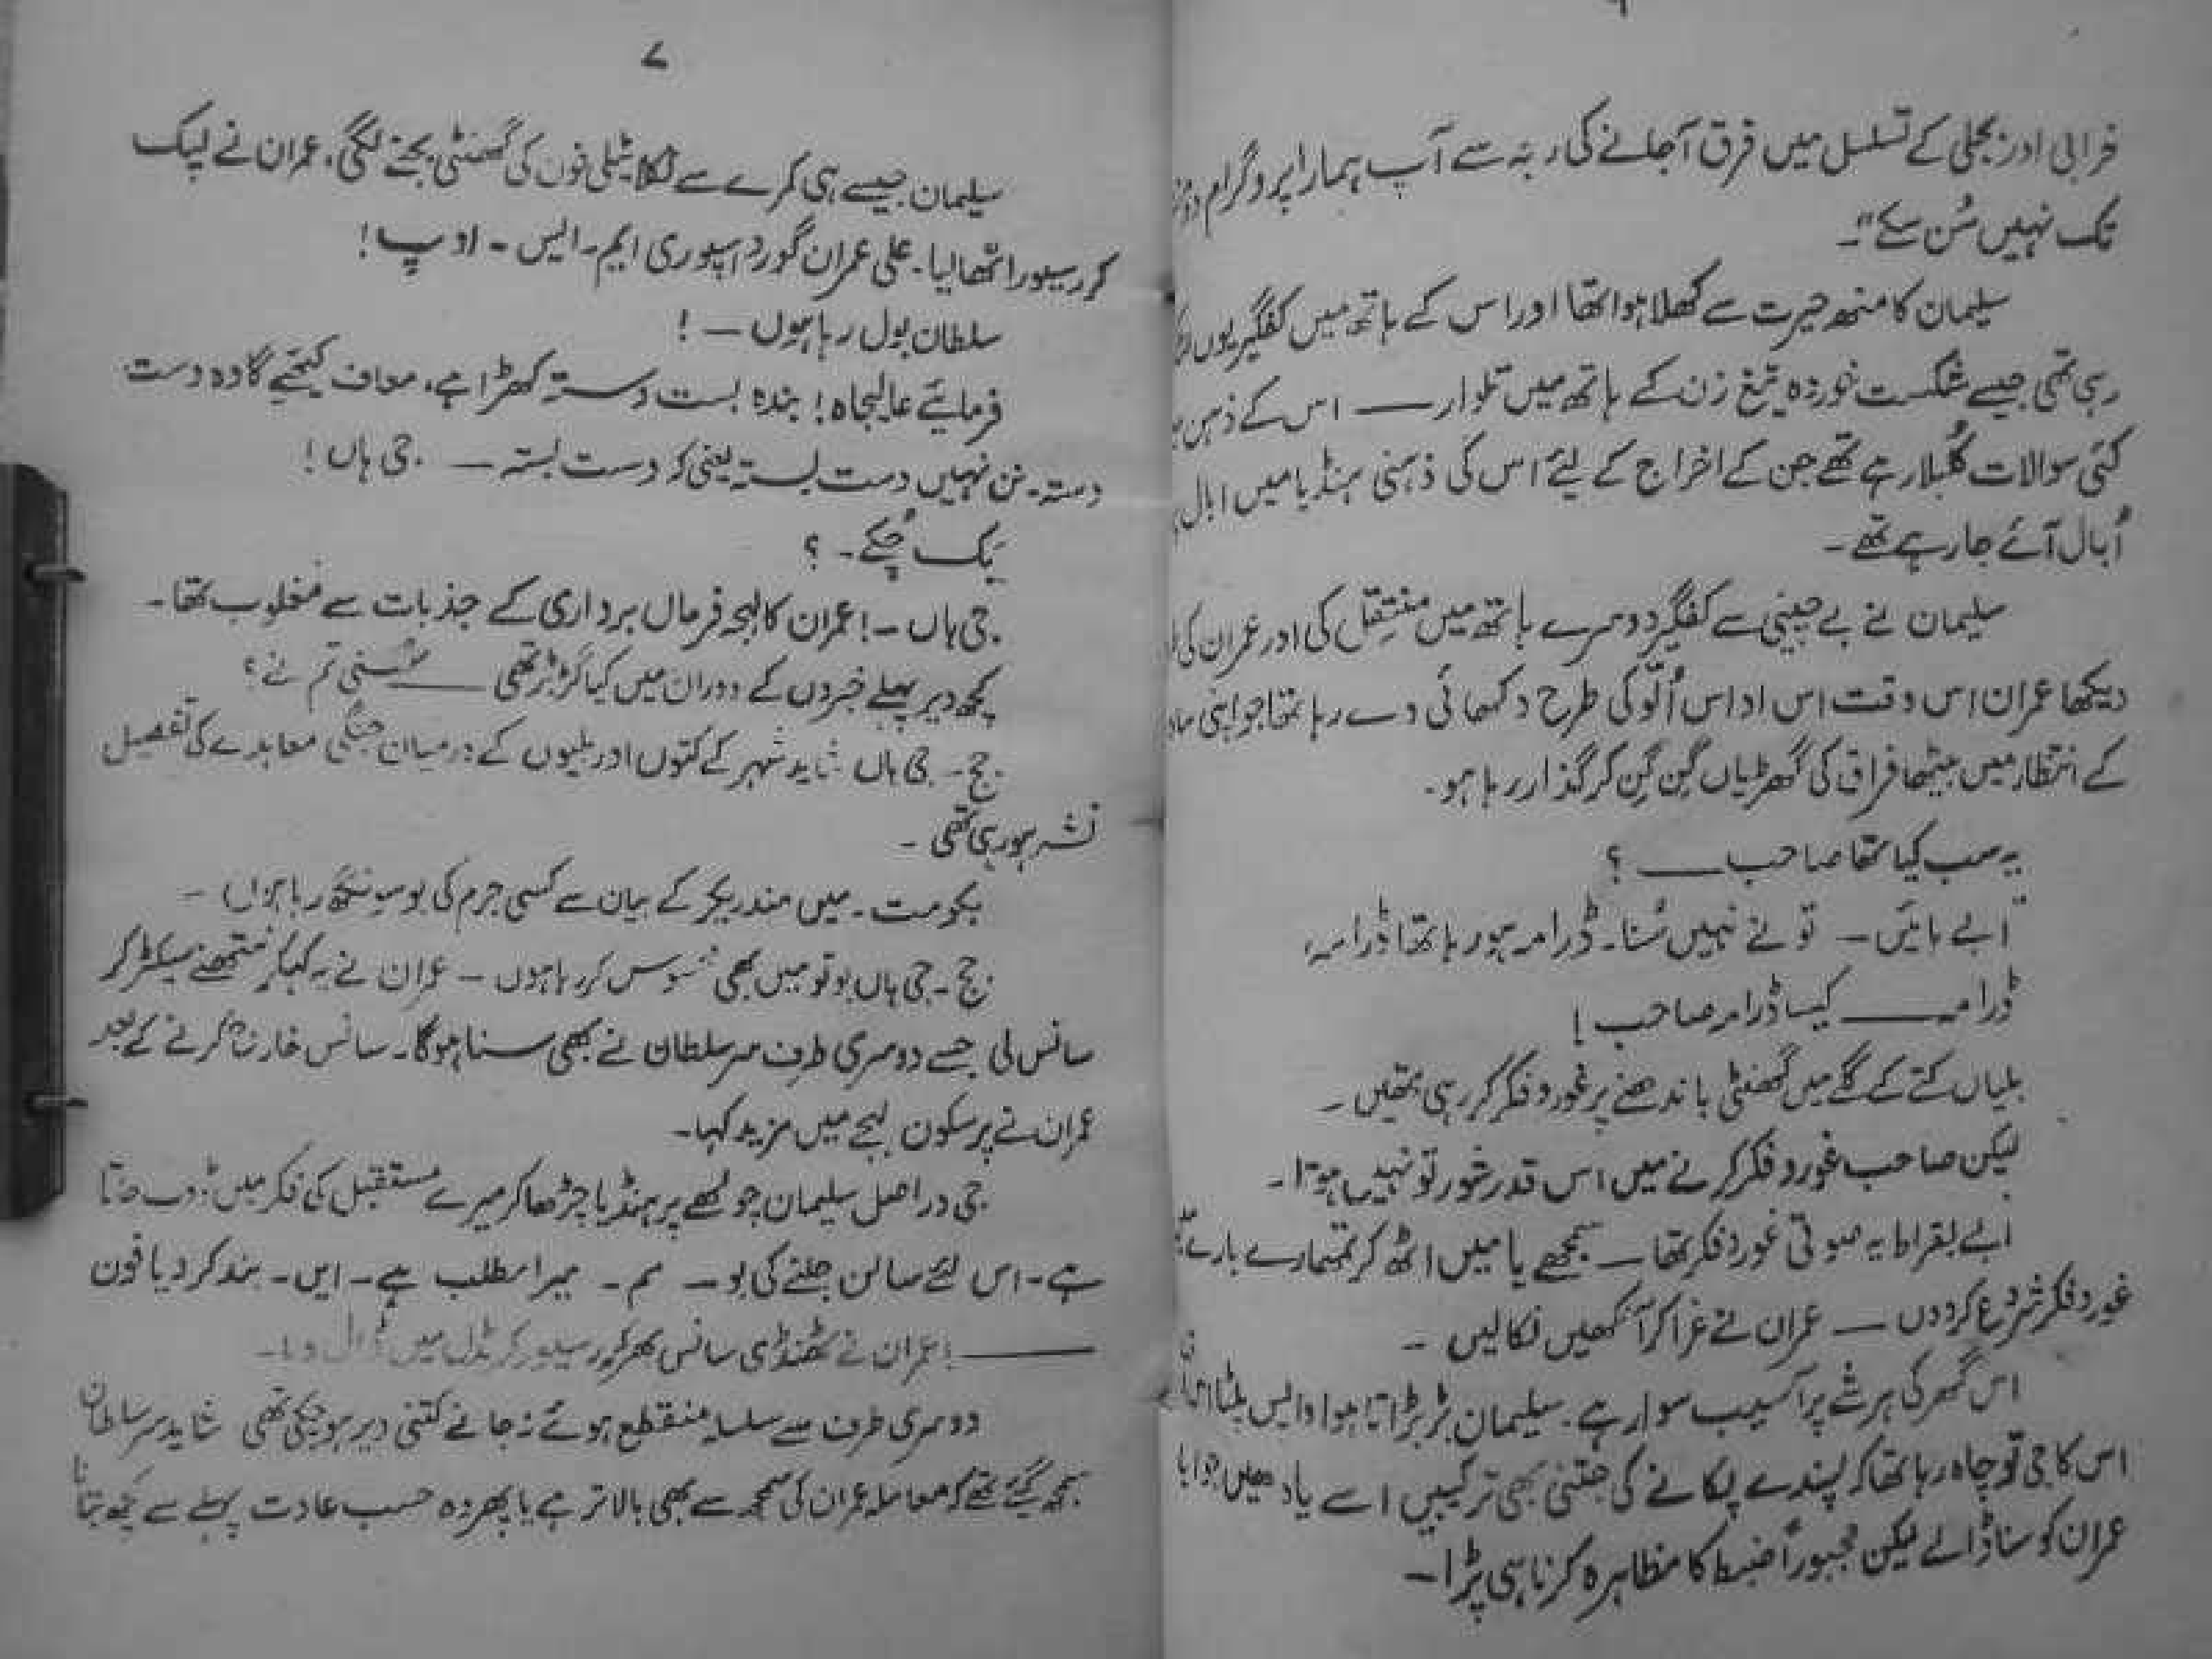 خرابی اور بجلی کے تسلسل میں فرق آجانے کی وجہ سے آپ ہمارا پروگرام
تک نہیں سُن سکے"۔
سلیمان کا منھ حیرت سے کھلا ہوا تھا اور اس کے ہاتھ میں کفگیر یوں
رہی تھی جیسے شکست خوردہ تیغ زن کے ہاتھ میں تلوار ــــ اس کے ذہن
کئی سوالات کُلبلا رہے تھے جن کے اخراج کے لیئے اس کی ذہنی ہنڈیا میں ابال
اُبال آئے جا رہے تھے۔
سلیمان نے بے چینی سے کفگیر دوسرے ہاتھ میں منتقل کی اور عمران کی
دیکھا عمران اس وقت اس اداس اُلّو کی طرح دکھائی دے رہا تھا جو اپنی
کے انتظار میں بیٹھا فراق کی گھڑیاں گِن گِن کر گذار رہا ہو۔
یہ سب کیا تھا صاحب ــــ ؟
ابے ہائیں ــ تو نے نہیں سُنا۔ ڈرامہ ہو رہا تھا ڈرامہ،
ڈرامہ ــــ کیسا ڈرامہ صاحب !
بلیاں کتے کے گلے میں گھنٹی باندھنے پر غور و فکر کر رہی تھیں۔
لیکن صاحب غور و فکر کرنے میں اس قدر شور تو نہیں ہوتا۔
ابے بقراط یہ صوتی غور و فکر تھا ــ سمجھے یا میں اٹھ کر تمھارے بارے
غور و فکر شروع کردوں ــ عمران نے غرا کر آنکھیں نکالیں ۔
اس گھر کی ہر شے پر آسیب سوار ہے۔ سلیمان بڑبڑاتا ہوا واپس پلٹا
اس کا جی تو چاہ رہا تھا کہ پسندے پکانے کی جتنی بھی ترکیبیں اسے یاد ھیں جوابا
عمران کو سنا ڈالے لیکن مجبوراً ضبط کا مظاہرہ کرنا ہی پڑا ــ
۷
سلیمان جیسے ہی کمرے سے نکلا ٹیلی فون کی گھنٹی بجنے لگی، عمران نے لپک
کر رسیور اٹھا لیا۔ علی عمران گوردم سپوری ایم۔ ایس ۔ او پ !
سلطان بول رہا ہوں ــ !
فرمائیے عالیجاہ ! بندہ بست دستہ کھڑا ہے، معاف کیجئے گا وہ دست
دستہ۔ نن نہیں دست بستہ یعنی کہ دست بستہ ــ جی ہاں !
بَک چُکے ۔ ؟
جی ہاں ــ ! عمران کا لہجہ فرماں برداری کے جذبات سے مغلوب تھا۔
کچھ دیر پہلے خبروں کے دوران میں کیا گڑبڑ تھی ــــ سُنی تم نے ؟
جج ۔ جی ہاں شاید شہر کے کتوں اور بلیوں کے درمیان جنگی معاہدے کی تفصیل
نشر ہو رہی تھی ۔
بکو مت ۔ میں مندریکر کے بیان سے کسی جرم کی بو سونگھ رہا ہوں ۔
جج ۔ جی ہاں بو تو میں بھی محسوس کر رہا ہوں ــ عمران نے یہ کہہ کر نتھنے سیکڑ کر
سانس لی جسے دوسری طرف سر سلطان نے بھی سنا ہوگا۔ سانس خارج کرنے کے بعد
عمران نے پرسکون لہجے میں مزید کہا۔
جی دراصل سلیمان چولھے پر ہنڈیا چڑھا کر میرے مستقبل کی فکر میں ڈوب جاتا
ہے ۔ اس لئے سالن جلنے کی بو ــ مم ۔ میرا مطلب ہے ۔ ایں ۔ بند کر دیا فون
ــــ ! عمران نے ٹھنڈی سانس بھر کر رسیور کریڈل میں ڈال دیا۔
دوسری طرف سے سلسلہ منقطع ہوئے نہ جانے کتنی دیر ہو چکی تھی شاید سر سلطان
سمجھ گئے تھے کہ معاملہ عمران کی سمجھ سے بھی بالاتر ہے یا پھر وہ حسب عادت پہلے سے کچھ بتانا